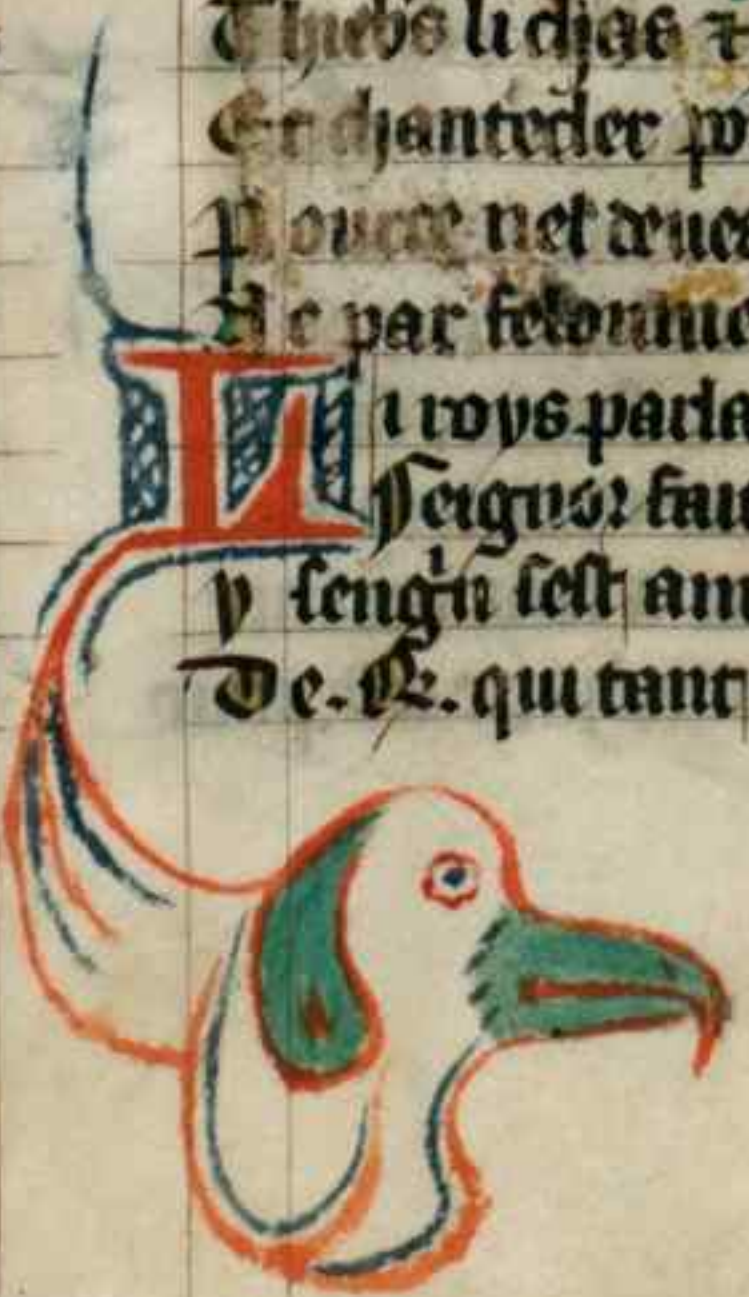 Thieb's li chas ⁊
Et chantecler po
Pource nel deuez
Ne par felonnie
Li roys parla
Seignor fait
y sengn sest am
De .R. qui tant